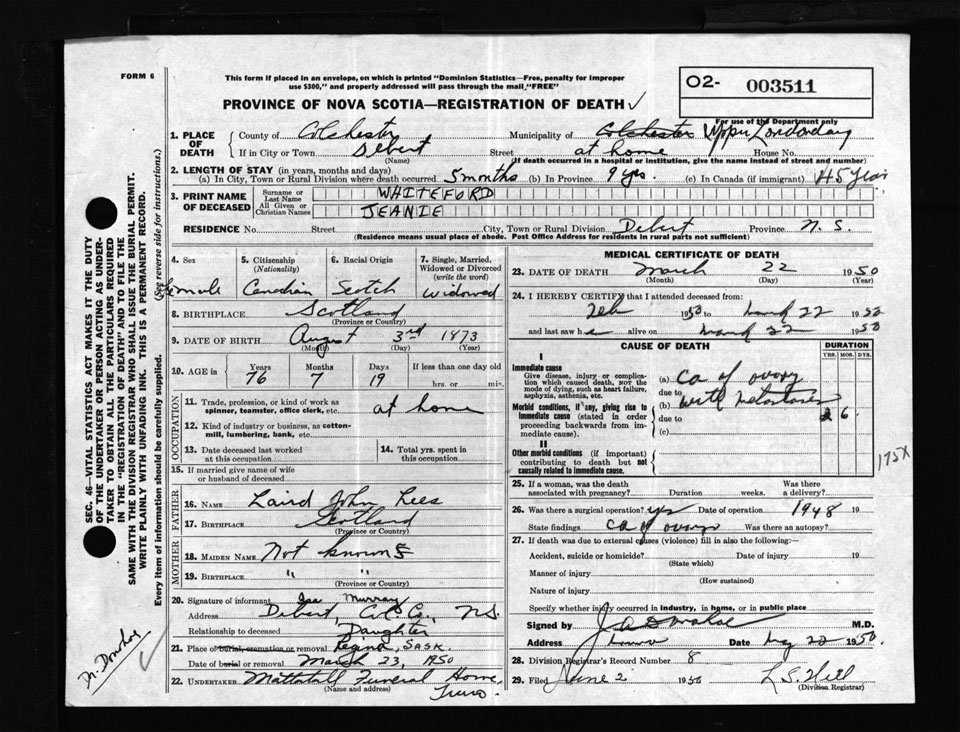 FORM 6
This form if placed in an envelope, on which is printed "Dominion Statistics—Free, penalty for improper
use $300," and properly addressed will pass through the mail "FREE"
O2- 003511
For use of the Department only
PROVINCE OF NOVA SCOTIA—REGISTRATION OF DEATH ✓
1. PLACE OF DEATH County of Colchester Municipality of Colchester Upper Londonderry
If in City or Town Debert (Name) Street at home House No.
(If death occurred in a hospital or institution, give the name instead of street and number)
2. LENGTH OF STAY (in years, months and days)
(a) In City, Town or Rural Division where death occurred 5 months (b) In Province 9 yrs. (c) In Canada (if immigrant) 45 years
3. PRINT NAME OF DECEASED Surname or Last Name WHITEFORD
All Given or Christian Names JEANIE
RESIDENCE No. Street City, Town or Rural Division Debert Province N. S.
(Residence means usual place of abode. Post Office Address for residents in rural parts not sufficient)
4. Sex Female
5. Citizenship (Nationality) Canadian
6. Racial Origin Scotch
7. Single, Married, Widowed or Divorced (write the word) Widowed
8. BIRTHPLACE Scotland
(Province or Country)
9. DATE OF BIRTH August 3rd 1873
(Month) (Day) (Year)
10. AGE in Years 76 Months 7 Days 19 If less than one day old hrs. or min.
OCCUPATION
11. Trade, profession, or kind of work as spinner, teamster, office clerk, etc. at home
12. Kind of industry or business, as cotton-mill, lumbering, bank, etc.
13. Date deceased last worked at this occupation
14. Total yrs. spent in this occupation
15. If married give name of wife or husband of deceased
FATHER
16. NAME Laird John Lees
17. BIRTHPLACE Scotland
(Province or Country)
MOTHER
18. MAIDEN NAME Not known
19. BIRTHPLACE " "
(Province or Country)
20. Signature of informant Murray
Address Debert, Col. Co., N.S.
Relationship to deceased Daughter
21. Place of burial, cremation or removal Sask.
Date of burial or removal March 23, 1950
22. UNDERTAKER Mattatall Funeral Home, Truro
(Name and address)
MEDICAL CERTIFICATE OF DEATH
23. DATE OF DEATH March 22 1950
(Month) (Day) (Year)
24. I HEREBY CERTIFY that I attended deceased from:
Feb 1950 to March 22 1950
and last saw h alive on March 22 1950
CAUSE OF DEATH
DURATION
YRS. MOS. DYS.
I
Immediate cause
Give disease, injury or complication which caused death, NOT the mode of dying, such as heart failure, asphyxia, asthenia, etc.
(a) Ca of ovary
due to
Morbid conditions, if any, giving rise to immediate cause (stated in order proceeding backwards from immediate cause).
(b) with metastases 2 6
due to
(c)
II
Other morbid conditions (if important) contributing to death but not causally related to immediate cause.
175X
25. If a woman, was the death associated with pregnancy? Duration weeks. Was there a delivery?
26. Was there a surgical operation? yes Date of operation 1948 19
State findings Ca of ovary Was there an autopsy?
27. If death was due to external causes (violence) fill in also the following:—
Accident, suicide or homicide? Date of injury 19
(State which)
Manner of injury
(How sustained)
Nature of injury
Specify whether injury occurred in industry, in home, or in public place
Signed by M.D.
Address Truro Date 22 1950
28. Division Registrar's Record Number 8
29. Filed June 2 1950 L. S. Hill
(Division Registrar)
SEC. 46—VITAL STATISTICS ACT MAKES IT THE DUTY
OF THE UNDERTAKER OR PERSON ACTING AS UNDERTAKER
TO OBTAIN ALL THE PARTICULARS REQUIRED
IN THE "REGISTRATION OF DEATH" AND TO FILE THE
SAME WITH THE DIVISION REGISTRAR WHO SHALL ISSUE THE BURIAL PERMIT.
WRITE PLAINLY WITH UNFADING INK. THIS IS A PERMANENT RECORD.
Every item of information should be carefully supplied. (See reverse side for instructions.)